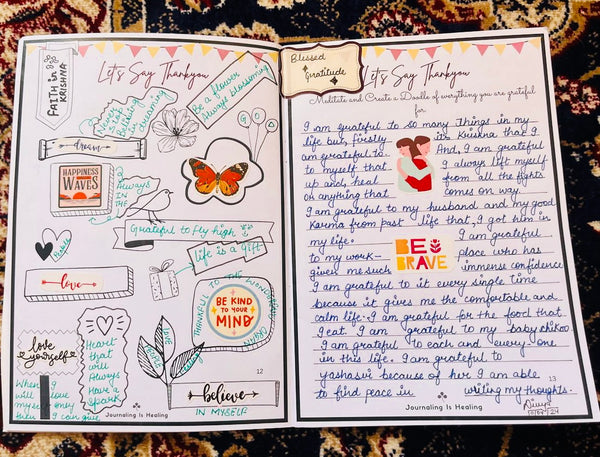 Let's Say Thankyou
FAITH in
KRISHNA
I
Never
Break
Believing
in dreaming
Be a flower
Always blossoming
dream
GOD
HAPPINESS
COMES IN
WAVES
I
Always
IN THE
Grateful to fly high
life is a gift
love
THANKFUL TO THE WONDERFUL
BRAIN
BE KIND
TO YOUR
MIND
love
yourself
Heart
that
will
Always
Have a
Spark
When I
will love
myself only
then I can give
believe
IN MYSELF
12
Journaling Is Healing
Blessed
Gratitude
Let's Say Thankyou
Meditate and Create a Doodle of everything you are grateful
for
I am grateful to so many Things in my
life but, firstly its Krishna that I
am grateful to. And, I am grateful
to myself that I always left myself
up and, heal from all the fights
or anything that comes on way.
I am grateful to my husband and my good
Karma from past life that, I got him in
my life. I am grateful
to my work- place who has
given me such immense confidence
I am grateful to it every single time
because it gives me the comfortable and
calm life. I am grateful for the food that
I eat. I am grateful to my baby chikoo
I am grateful to each and every one
in this life. I am grateful to
yashasvi because of her I am able
to find peace in writing my thoughts.
BE
BRAVE
13
Journaling Is Healing